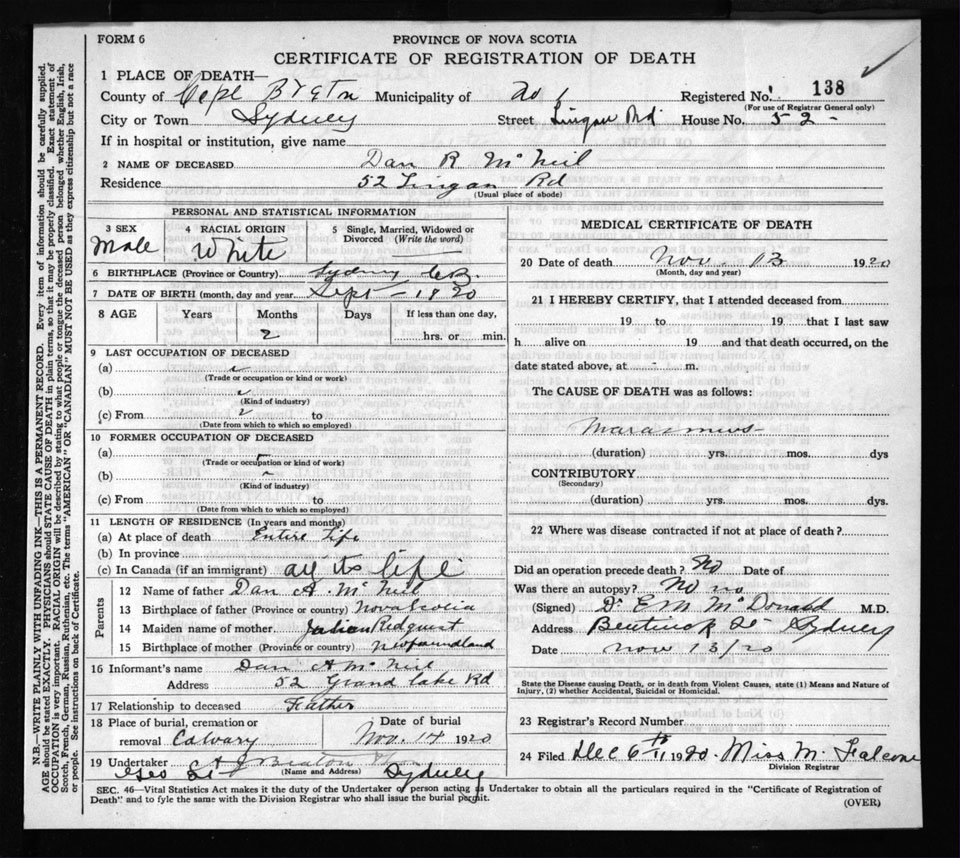 FORM 6
PROVINCE OF NOVA SCOTIA
CERTIFICATE OF REGISTRATION OF DEATH
1 PLACE OF DEATH—
County of Cape Breton Municipality of Registered No. 138
(For use of Registrar General only)
City or Town Sydney Street Lingan Rd House No. 52 -
If in hospital or institution, give name
2 NAME OF DECEASED Dan R McNeil
Residence 52 Lingan Rd
(Usual place of abode)
PERSONAL AND STATISTICAL INFORMATION
3 SEX Male
4 RACIAL ORIGIN White
5 Single, Married, Widowed or Divorced (Write the word)
6 BIRTHPLACE (Province or Country) Sydney C.B.
7 DATE OF BIRTH (month, day and year) Sept - 1920
8 AGE Years Months Days If less than one day,
2 hrs. or min.
9 LAST OCCUPATION OF DECEASED
(a)
(Trade or occupation or kind or work)
(b)
(Kind of industry)
(c) From to
(Date from which to which so employed)
10 FORMER OCCUPATION OF DECEASED
(a)
(Trade or occupation or kind of work)
(b)
(Kind of industry)
(c) From to
(Date from which to which so employed)
11 LENGTH OF RESIDENCE (In years and months)
(a) At place of death Entire life
(b) In province
(c) In Canada (if an immigrant) all its life
Parents
12 Name of father Dan A. McNeil
13 Birthplace of father (Province or country) Nova Scotia
14 Maiden name of mother Redquest
15 Birthplace of mother (Province or country) Newfoundland
16 Informant's name Dan A McNeil
Address 52 Grand Lake Rd
17 Relationship to deceased Father
18 Place of burial, cremation or removal Calvary
Date of burial Nov. 14 1920
19 Undertaker A J Beaton
(Name and Address)
Geo St Sydney
MEDICAL CERTIFICATE OF DEATH
20 Date of death Nov. 13 1920
(Month, day and year)
21 I HEREBY CERTIFY, that I attended deceased from
19 to 19 that I last saw
h alive on 19 and that death occurred, on the
date stated above, at m.
The CAUSE OF DEATH was as follows:
Marasmus
(duration) yrs. mos. dys
CONTRIBUTORY
(Secondary)
(duration) yrs. mos. dys.
22 Where was disease contracted if not at place of death?
Did an operation precede death? No Date of
Was there an autopsy? No no
(Signed) Dr E M McDonald M.D.
Address Bentinck St Sydney
Date Nov 13/20
State the Disease causing Death, or in death from Violent Causes, state (1) Means and Nature of
Injury, (2) whether Accidental, Suicidal or Homicidal.
23 Registrar's Record Number
24 Filed Dec 6th 1920 Miss M. Falcone
Division Registrar
SEC. 46—Vital Statistics Act makes it the duty of the Undertaker or person acting as Undertaker to obtain all the particulars required in the "Certificate of Registration of
Death" and to fyle the same with the Division Registrar who shall issue the burial permit.
(OVER)
N.B.—WRITE PLAINLY WITH UNFADING INK—THIS IS A PERMANENT RECORD. Every item of information should be carefully supplied.
AGE should be stated EXACTLY. PHYSICIANS should STATE CAUSE OF DEATH in plain terms, so that it may be properly classified. Exact statement of
OCCUPATION is very important. RACIAL ORIGIN will be described by stating to what people or tongue the deceased person belonged whether English, Irish,
Scotch, French, German, Russian, Ruthenian, etc. The terms "AMERICAN" OR "CANADIAN" MUST NOT BE USED as they express citizenship but not a race
or people. See instructions on back of Certificate.